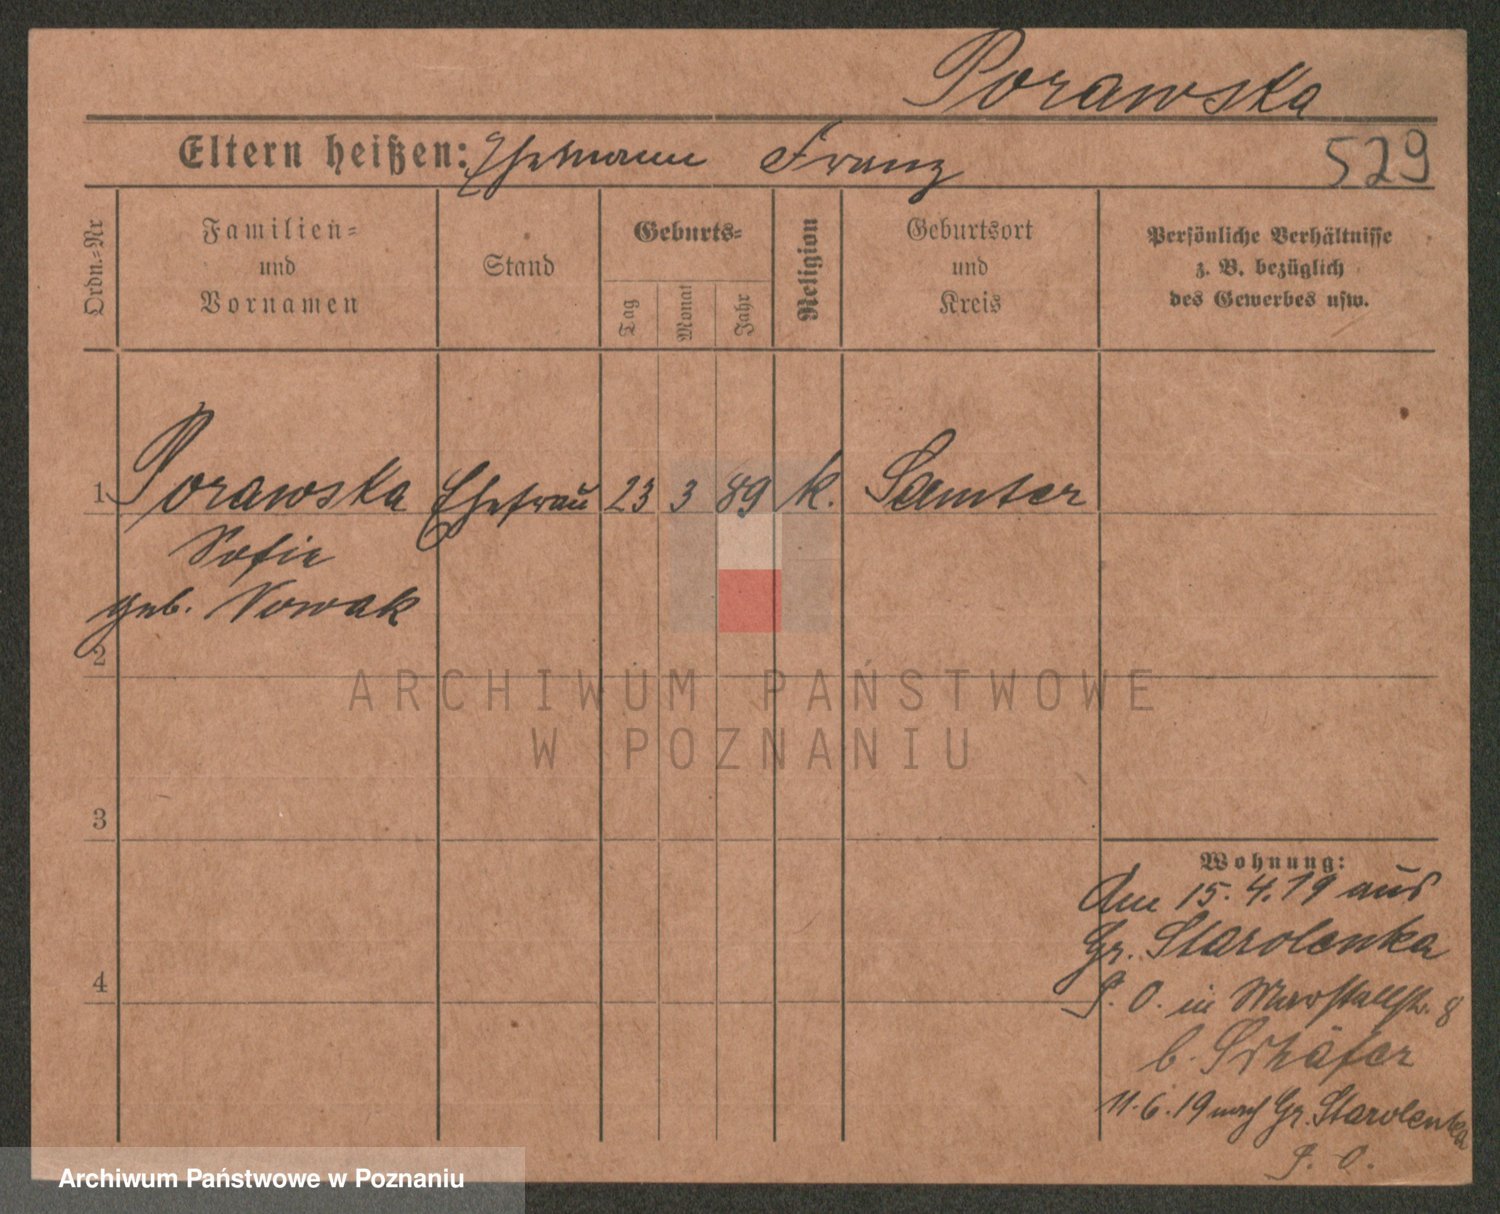 Porawska
Eltern heißen: Ehemann Franz
529
Ordn.-Nr
Familien-
und
Vornamen
Stand
Geburts-
Tag
Monat
Jahr
Religion
Geburtsort
und
Kreis
Persönliche Verhältnisse
z. B. bezüglich
des Gewerbes usw.
1 Porawska Ehefrau 23 3 89 k. Samter
Sofie
geb. Nowak
2
ARCHIWUM PAŃSTWOWE
W POZNANIU
3
Wohnung:
Am 15.4.19 aus
Gr. Starolenka
4
P. O. in Marstallstr. 8
b. Schäfer
11.6.19 nach Gr. Starolenka
P. O.
Archiwum Państwowe w Poznaniu